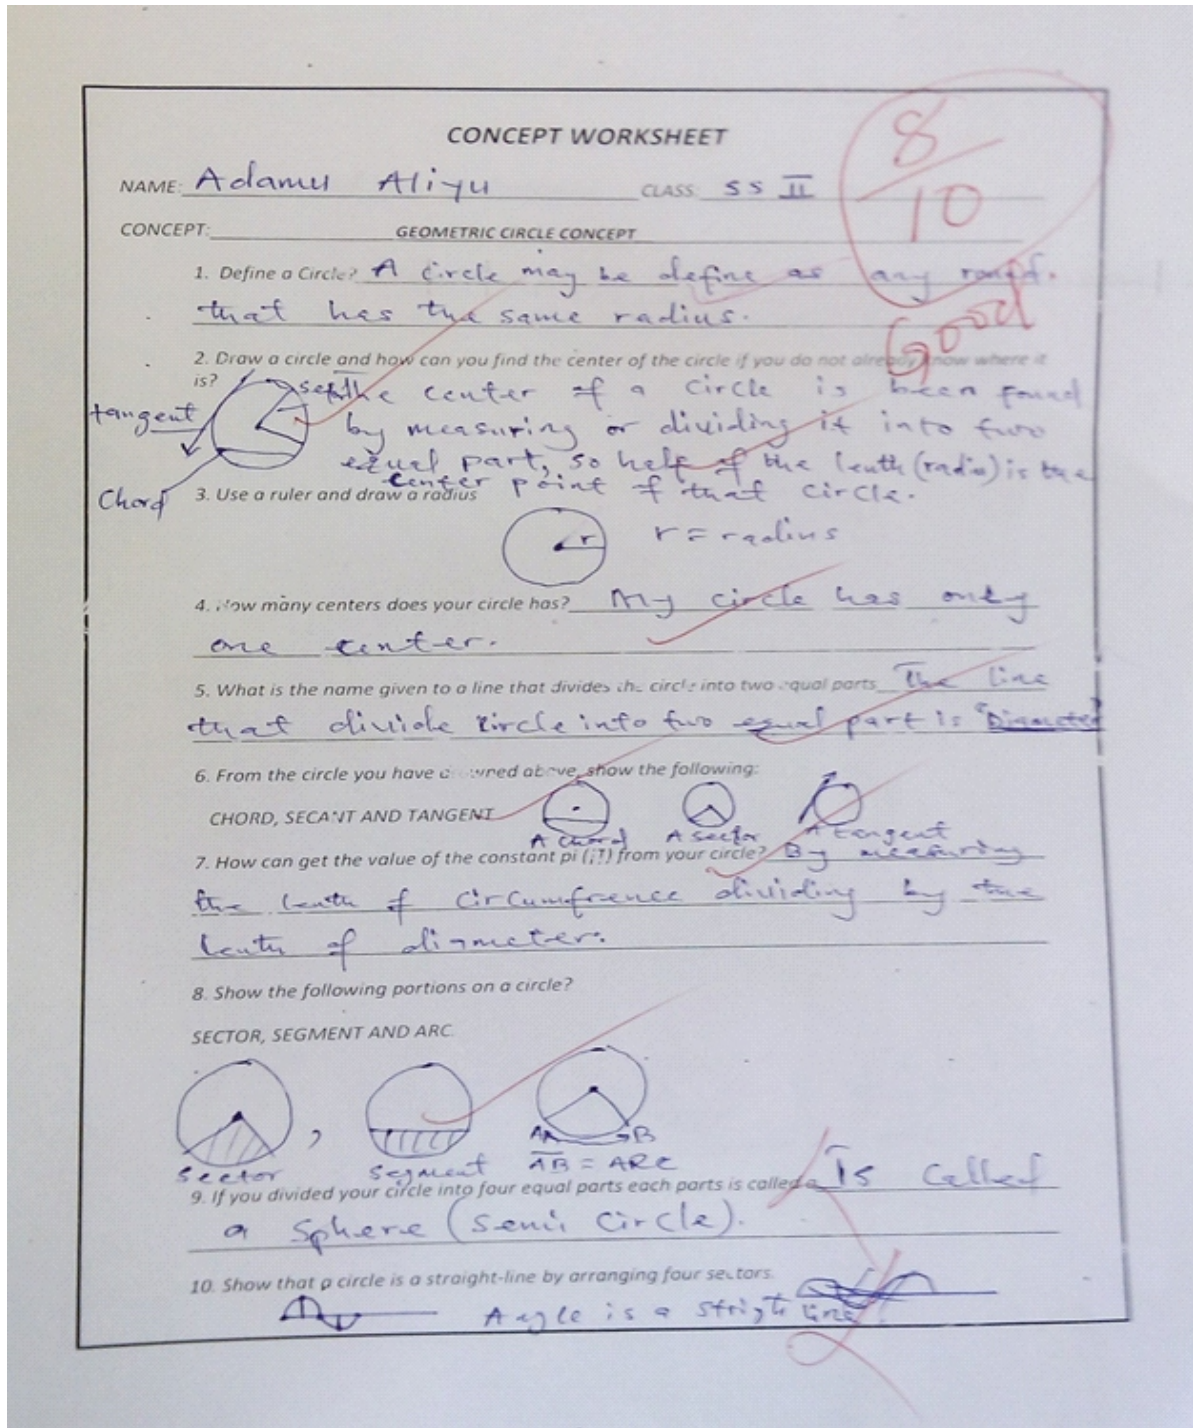 CONCEPT WORKSHEET
8/10
NAME: Adamu Aliyu CLASS: SS II
CONCEPT: GEOMETRIC CIRCLE CONCEPT
1. Define a Circle? A circle may be define as any round.
that has the same radius.
Good
2. Draw a circle and how can you find the center of the circle if you do not already know where it
is? The center of a circle is been found
tangent
by measuring or dividing it into two
equal part, so half of the lenth (radio) is the
center point of that circle.
Chord
3. Use a ruler and draw a radius
r r = radius
4. How many centers does your circle has? My circle has only
one center.
5. What is the name given to a line that divides the circle into two equal parts The line
that divide circle into two equal part is "Diameter"
6. From the circle you have drowned above, show the following:
CHORD, SECANT AND TANGENT
A chord A sector A tangent
7. How can get the value of the constant pi from your circle? By measuring
the lenth of circumfrence dividing by the
lenth of diameter.
8. Show the following portions on a circle?
SECTOR, SEGMENT AND ARC.
A B
sector segment AB = ARC
9. If you divided your circle into four equal parts each parts is called a Is called
a sphere (semi circle).
10. Show that a circle is a straight-line by arranging four sectors.
Angle is a stright line